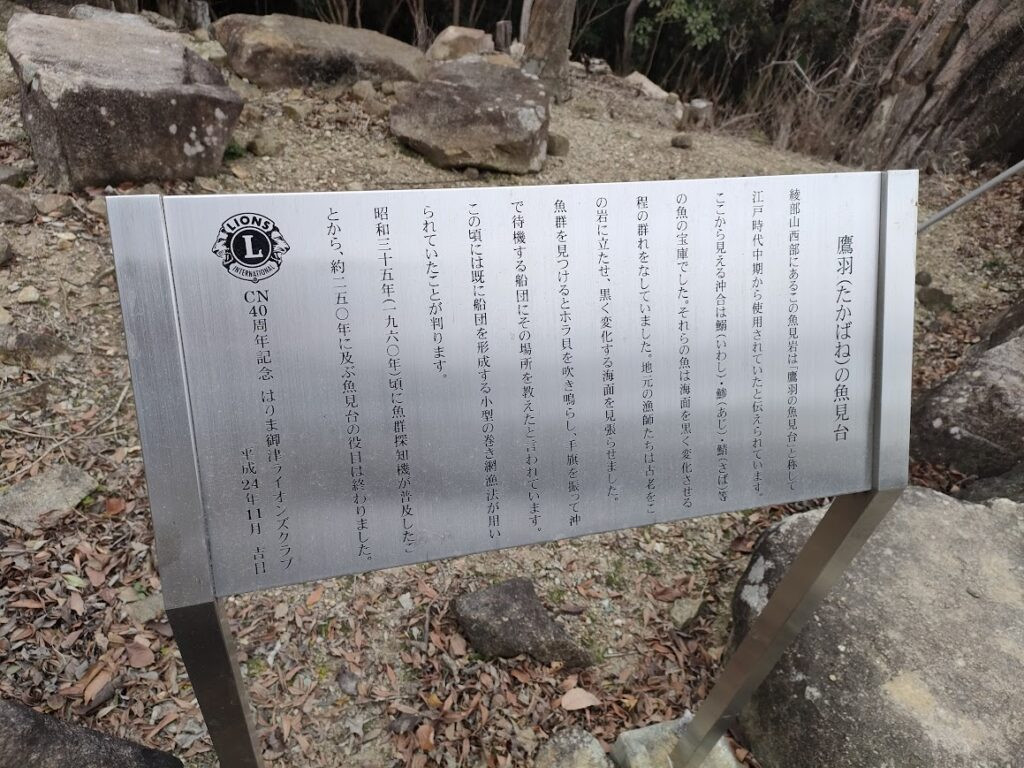 鷹羽(たかばね)の魚見台
綾部山西部にあるこの魚見岩は「鷹羽の魚見台」と称して
江戸時代中期から使用されていたと伝えられています。
ここから見える沖合は鰯(いわし)・鯵(あじ)・鯖(さば)等
の魚の宝庫でした。それらの魚は海面を黒く変化させる
程の群れをなしていました。地元の漁師たちは古老をこ
の岩に立たせ、黒く変化する海面を見張らせました。
魚群を見つけるとホラ貝を吹き鳴らし、手旗を振って沖
で待機する船団にその場所を教えたと言われています。
この頃には既に船団を形成する小型の巻き網漁法が用い
られていたことが判ります。
昭和三十五年(一九六〇年)頃に魚群探知機が普及したこ
とから、約二五〇年に及ぶ魚見台の役目は終わりました。
LIONS
L
INTERNATIONAL
CN40周年記念 はりま御津ライオンズクラブ
平成24年11月 吉日